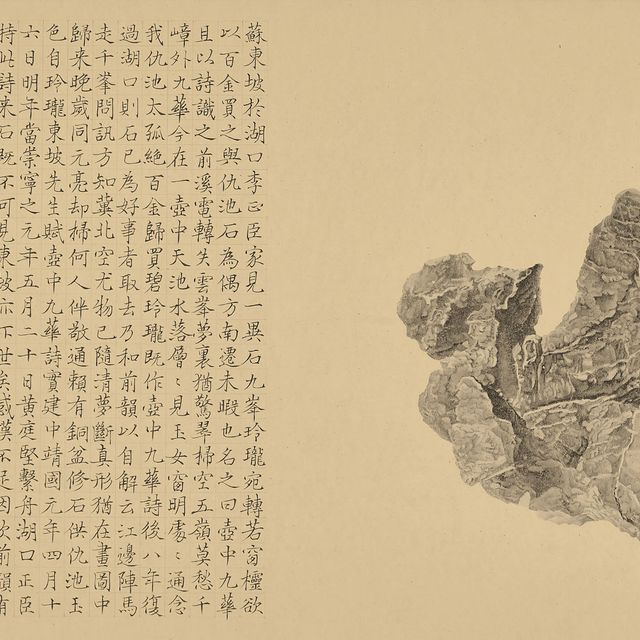 蘇東坡於湖口李正臣家見一異石九峯玲瓏宛轉若窗櫺欲
以百金買之與仇池石為偶方南遷未暇也名之曰壺中九華
且以詩識之前溪電轉失雲峯夢裏猶驚翠掃空五嶺莫愁千
嶂外九華今在一壺中天池水落層〻見玉女窗明處〻通念
我仇池太孤絕百金歸買碧玲瓏既作壺中九華詩後八年復
過湖口則石已為好事者取去乃和前韻以自解云江邊陣馬
走千峯問訊方知冀北空尤物已隨清夢斷真形猶在畫圖中
歸来晚歲同元亮却掃何人伴敬通賴有銅盆修石供仇池玉
色自玲瓏東坡先生賦壺中九華詩實建中靖國元年四月十
六日明年當崇寧之元年五月二十日黃庭堅繫舟湖口正臣
持此詩来石既不可見東坡亦下世矣感歎不足因次前韻有